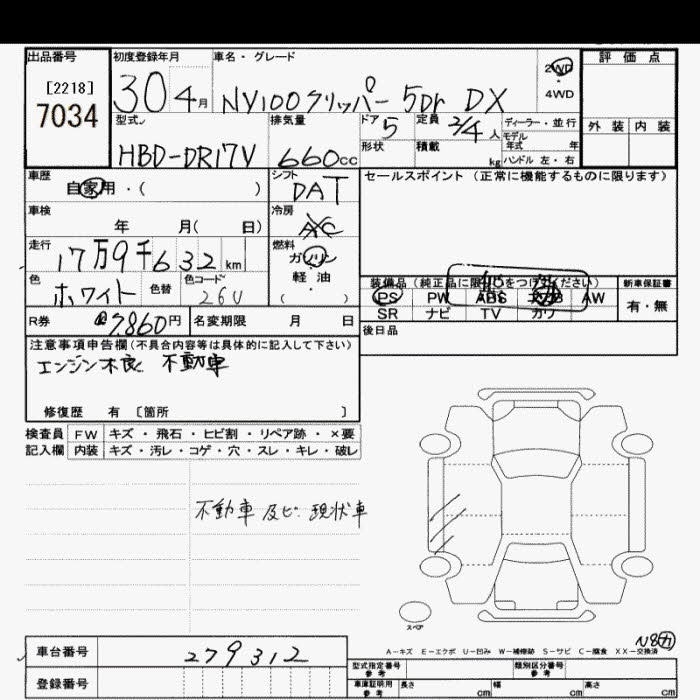 出品番号 初度登録年月 車名・グレード 2WD 評価点
[2218] 30 4月 NV100クリッパー 5Dr DX 4WD
7034 型式 排気量 ドア 5 定員 2/4人 ディーラー・並行 外装 内装
HBD-DR17V 660cc 形状 積載 kg モデル年式 年 ハンドル 左・右
車歴 自家用・( ) シフト DAT セールスポイント(正常に機能するものに限ります)
車検 年 月( 日) 冷房 A/C
走行 17万9千632km 燃料 ガソリン
色 ホワイト 色替 色コード 26U 軽・油 ( )
装備品(純正品に限り○をつけください) 新車保証書
PS PW ABS エアB AW 有・無
SR ナビ TV カワ
R券 7860円 名変期限 月 日 後日品
注意事項申告欄(不具合内容等は具体的に記入して下さい)
エンジン不良 不動車
修復歴 有 〔箇所 〕
検査員 FW キズ・飛石・ヒビ割・リペア跡・×要
記入欄 内装 キズ・汚レ・コゲ・穴・スレ・キレ・破レ
不動車 及ビ 現状車
スペア
N8カ
A-キズ E-エクボ U-凹み W-補修跡 S-サビ C-腐食 XX-交換済
車台番号 279312
型式指定番号 参考 類別区分番号 参考
登録番号 車庫証明用 参考 長さ cm 幅 cm 高さ cm